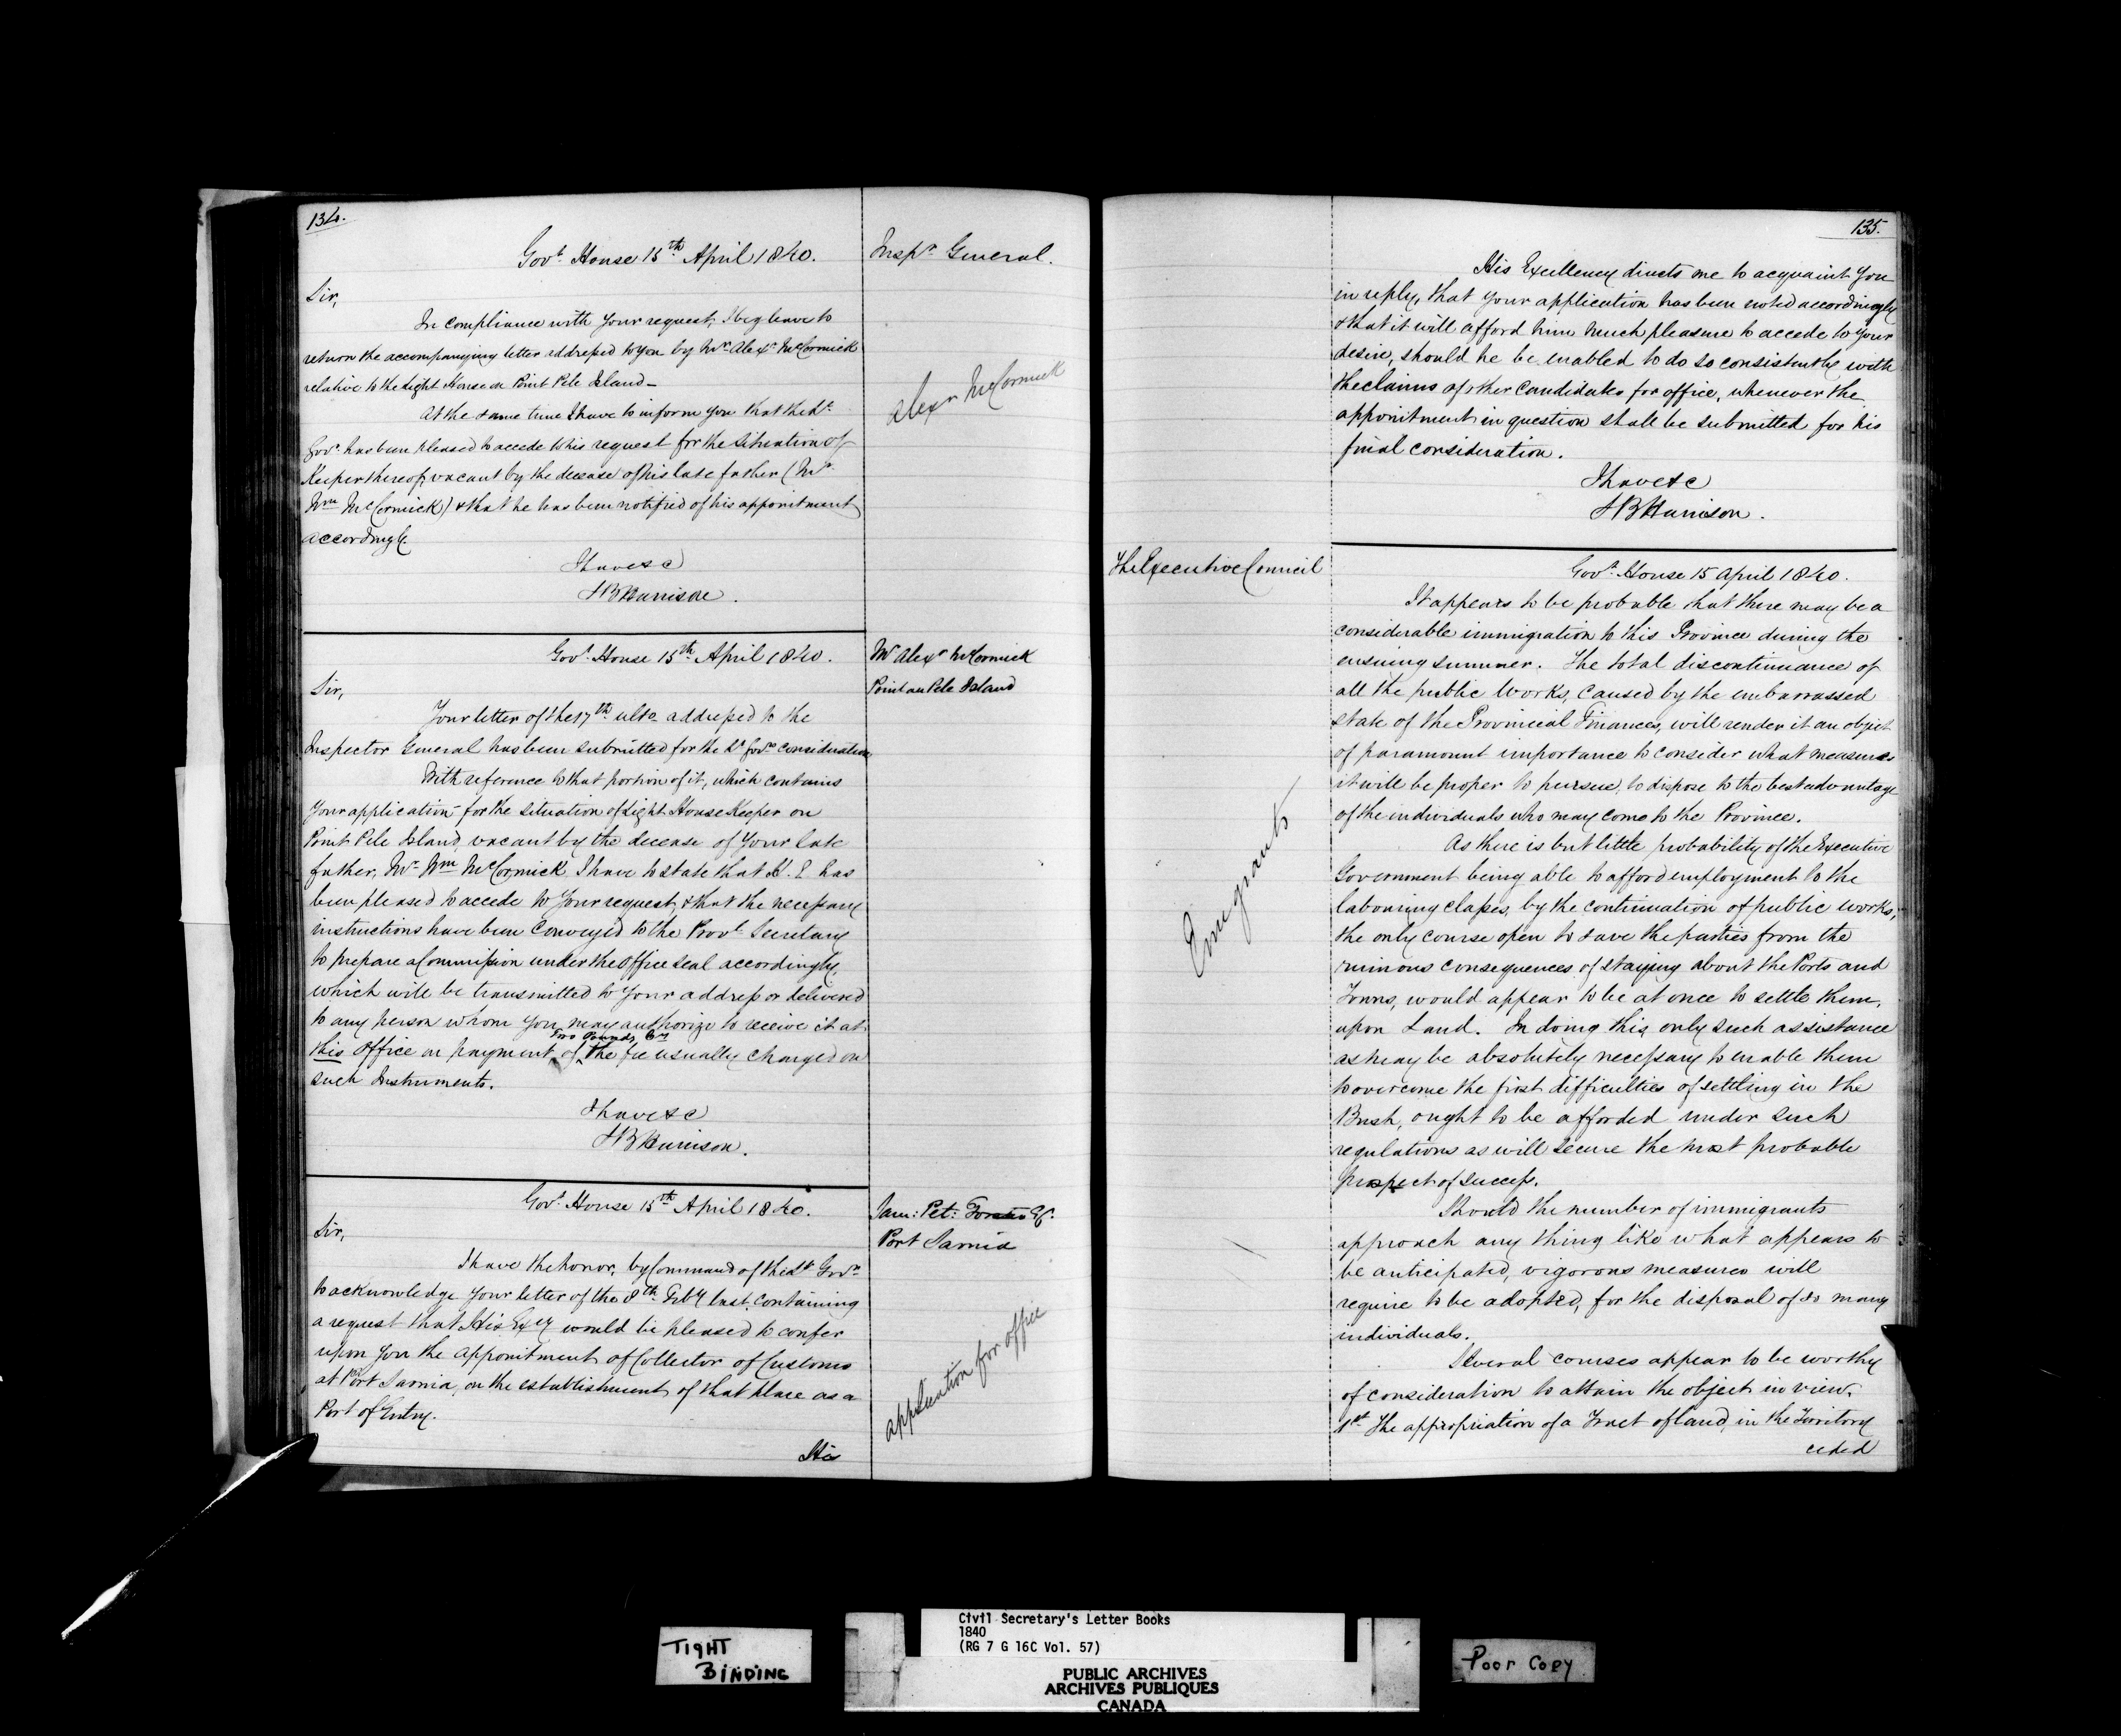 134.
Govt. House 15th April 1840.
Inspr. General.
Sir,
In compliance with your request, I beg leave to
return the accompanying letter addressed to you by Mr. Alexr. McCormick
relative to the Light House on Point Pele Island_
At the same time I have to inform you that the Lt.
Govr. has been pleased to accede to his request for the situation of
Keeper thereof, vacant by the decease of his late father (Mr.
Wm. McCormick) & that he has been notified of his appointment
accordingly.
Alexr McCormick
I have &c
SB Harrison.
Govt. House 15th. April 1840.
Mr Alexr McCormick
Point au Pele Island
Sir,
Your letter of the 17th ulto. addressed to the
Inspector General has been submitted for the Lt. Govrs. consideration
With reference to that portion of it, which contains
your application for the situation of Light House Keeper on
Point Pele Island, vacant by the decease of your late
father, Mr. Wm McCormick, I have to state that H. E has
been pleased to accede to your request, & that the necessary
instructions have been conveyed to the Provl. Secretary
to prepare a Commission under the Office Seal accordingly,
which will be transmitted to your address or delivered
to any person whom you may authorize to receive it at
this Office on payment of the fee usually charged on
Two Pounds
such Instruments.
I have &c
SB Harrison.
Govt. House 15th April 1840.
Jam: Pet: Esq.
Port Sarnia
Sir,
I have the honor, by Command of the Lt. Govr.
to acknowledge your letter of the 8th. Feby last, containing
a request that His Excy would be pleased to confer
upon you the appointment of Collector of Customs
at Port Sarnia, on the establishment of that place as a
Port of Entry.
application for office
His
135.
His Excellency directs me to acquaint you
in reply, that your application has been noted accordingly
& that it will afford him much pleasure to accede to your
desire, should he be enabled to do so consistently with
the claims of other candidates for office, whenever the
appointment in question shall be submitted for his
final consideration.
I have &c
SB Harrison.
The Executive Council
Govt. House 15 April 1840.
It appears to be probable that there may be a
considerable immigration to this Province during the
ensuing summer. The total discontinuance of
all the public Works, caused by the embarrassed
state of the Provincial Finances, will render it an object
of paramount importance to consider what measures
it will be proper to pursue, to dispose to the best advantage
of the individuals who may come to the Province.
Emigrants
As there is but little probability of the Executive
Government being able to afford employment to the
labouring classes, by the continuation of public works,
the only course open to save the parties from the
ruinous consequences of staying about the Ports and
Towns, would appear to be at once to settle them,
upon Land. In doing this, only such assistance
as may be absolutely necessary to enable them
to overcome the first difficulties of settling in the
Bush, ought to be afforded under such
regulations as will secure the most probable
prospect of success.
Should the number of immigrants
approach any thing like what appears to
be anticipated, vigorous measures will
require to be adopted, for the disposal of so many
individuals.
Several courses appear to be worthy
of consideration to attain the object in view.
1st. The appropriation of a Tract of land, in the Territory
ceded
TIGHT
BINDING
Civil Secretary's Letter Books
1840
(RG 7 G 16C Vol. 57)
PUBLIC ARCHIVES
ARCHIVES PUBLIQUES
CANADA
Poor Copy